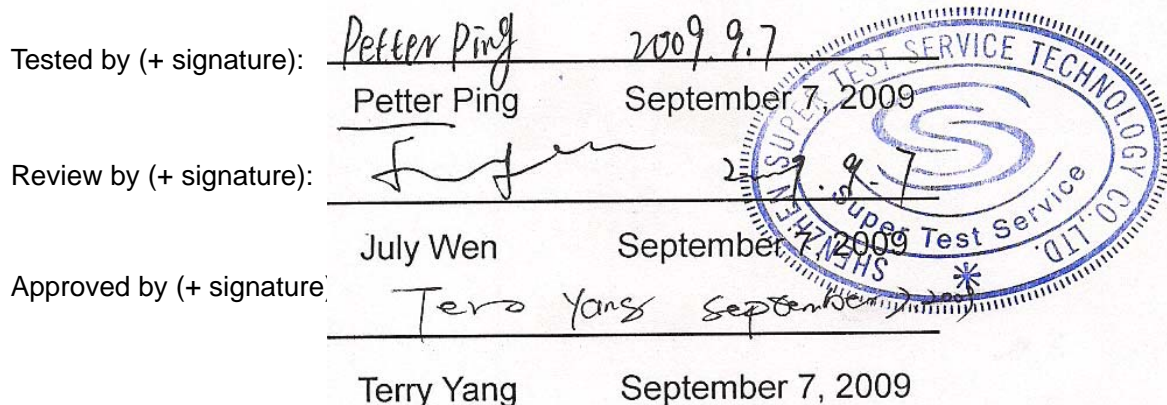 Tested by (+ signature): Petter Ping 2009.9.7
Petter Ping September 7, 2009
Review by (+ signature): 2009.9.7
July Wen September 7, 2009
Approved by (+ signature) Yang September 7, 2009
Terry Yang September 7, 2009
SHENZHEN SUPER TEST SERVICE TECHNOLOGY CO., LTD.
Super Test Service